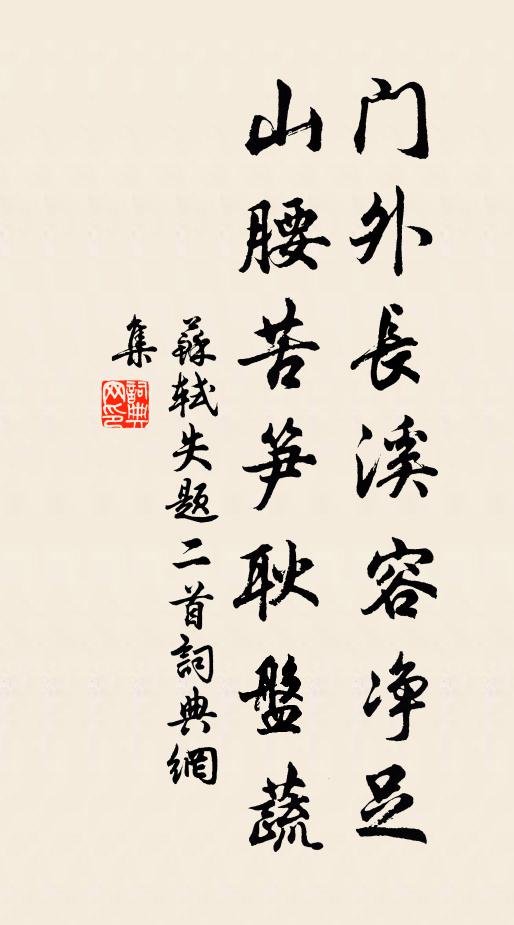 门外長溪容净足
山腰苦笋耿盤蔬
蘇轼失题二首詞典網
集
詞典
网印